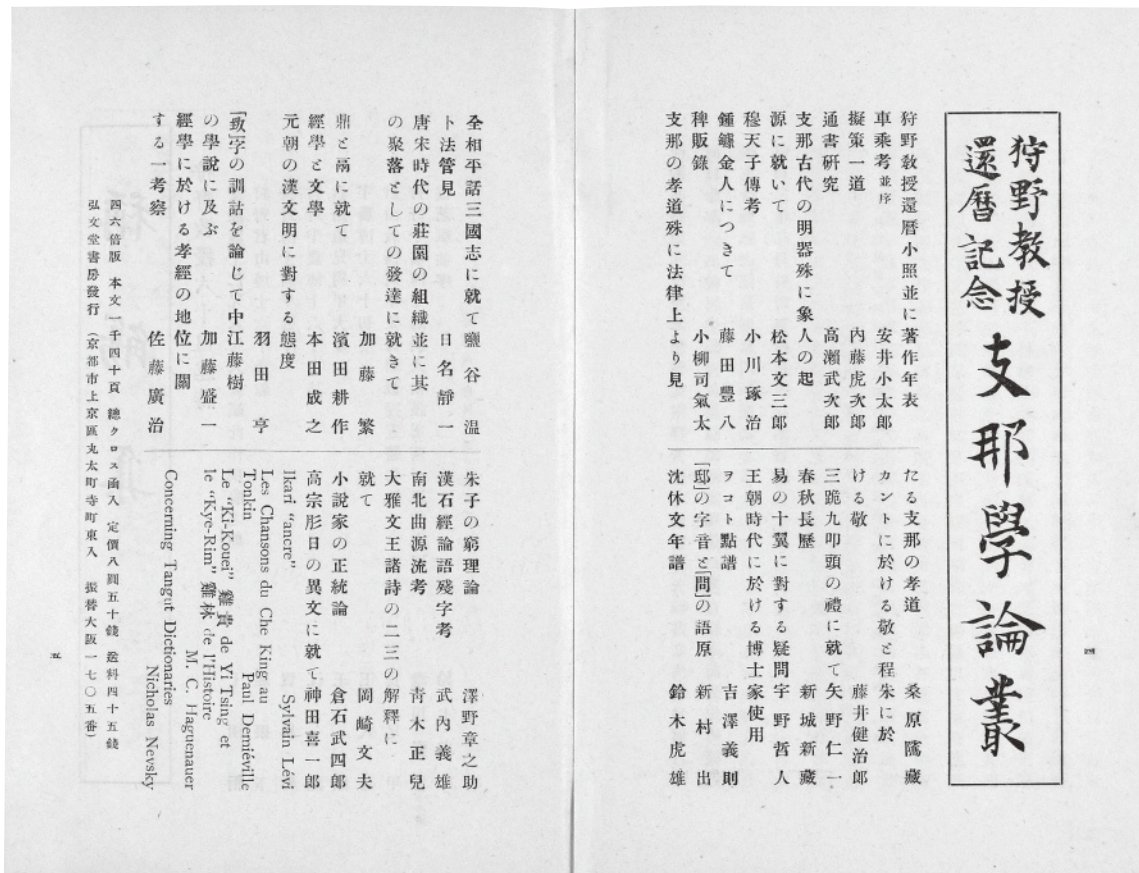 狩野教授
還曆記念
支那學論叢
狩野教授還曆小照並に著作年表
車乘考並序 安井小太郎
擬策一道 內藤虎次郎
通書研究 高瀨武次郎
支那古代の明器殊に象人の起
源に就いて 松本文三郎
穆天子傳考 小川琢治
鍾鐻金人につきて 藤田豐八
稗販錄 小柳司氣太
支那の孝道殊に法律上より見
たる支那の孝道 桑原隲藏
カントに於ける敬と程朱に於
ける敬 藤井健治郎
三跪九叩頭の禮に就て 矢野仁一
春秋長歷 新城新藏
易の十翼に對する疑問 宇野哲人
王朝時代に於ける博士家使用
ヲコト點譜 吉澤義則
「邸」の字音と「問」の語原 新村出
沈休文年譜 鈴木虎雄
四
全相平話三國志に就て 鹽谷溫
卜法管見 日名靜一
唐宋時代の莊園の組織並に其
の聚落としての發達に就きて 加藤繁
鼎と鬲に就て 濱田耕作
經學と文學 本田成之
元朝の漢文明に對する態度
羽田亨
「致」字の訓詁を論じて中江藤樹
の學說に及ぶ 加藤盛一
經學に於ける孝經の地位に關
する一考察 佐藤廣治
朱子の窮理論 澤野章之助
漢石經論語殘字考 武內義雄
南北曲源流考 青木正兒
大雅文王諸詩の二三の解釋に
就て 岡崎文夫
小說家の正統論 倉石武四郎
高宗肜日の異文に就て 神田喜一郎
Ikari “ancre” Sylvain Lévi
Les Chansons du Che King au
Tonkin Paul Demiéville
Le “Ki-Kouei” 雞貴 de Yi Tsing et
le “Kye-Rim” 雞林 de l'Histoire
M. C. Haguenauer
Concerning Tangut Dictionaries
Nicholas Nevsky
四六倍版 本文一千四十頁 總クロス函入 定價八圓五十錢 送料四十五錢
弘文堂書房發行 (京都市上京區丸太町寺町東入 振替大阪一七〇五番)
五